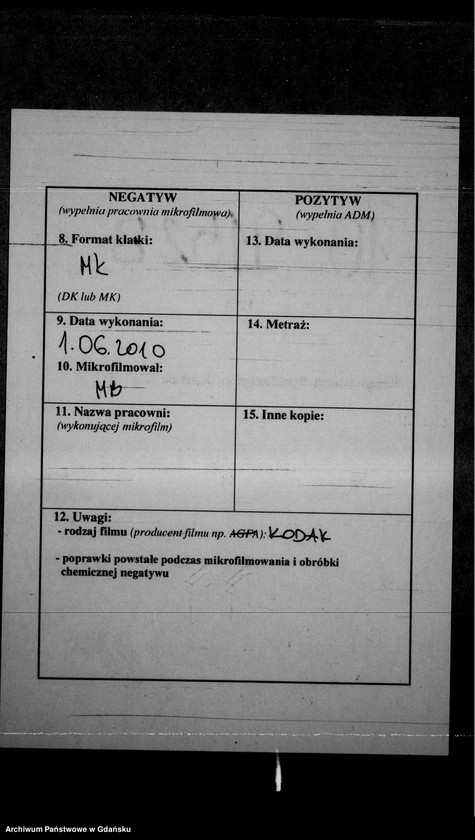 NEGATYW
(wypełnia pracownia mikrofilmowa)
8. Format klatki:
MK
(DK lub MK)
9. Data wykonania:
1.06.2010
10. Mikrofilmował:
MB
11. Nazwa pracowni:
(wykonującej mikrofilm)
POZYTYW
(wypełnia ADM)
13. Data wykonania:
14. Metraż:
15. Inne kopie:
12. Uwagi:
- rodzaj filmu (producent filmu np. AGFA): KODAK
- poprawki powstałe podczas mikrofilmowania i obróbki
chemicznej negatywu
Archiwum Państwowe w Gdańsku